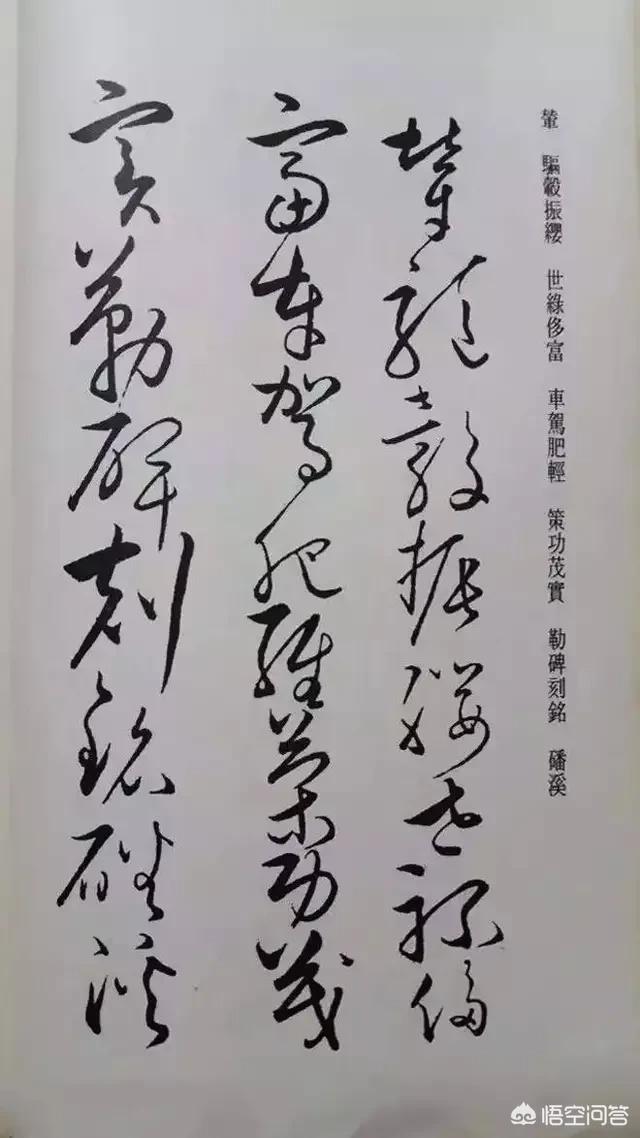 輦 驅轂振纓 世祿侈富 車駕肥輕 策功茂實 勒碑刻銘 磻溪
輦驅轂振纓世祿侈
富車駕肥輕策功茂
實勒碑刻銘磻溪
悟空问答